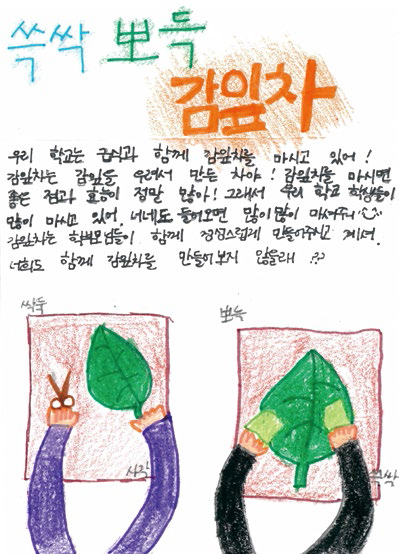 쓱싹 뽀득
감잎차
우리 학교는 급식과 함께 감잎차를 마시고 있어!
감잎차는 감잎을 우려서 만든 차야! 감잎차를 마시면
좋은 점과 효능이 정말 많아! 그래서 우리 학교 학생들이
많이 마시고 있어. 너네도 들어보면 많이많이 마셔줘
감잎차는 학부모님들이 함께 정성스럽게 만들어주시고 계셔.
너희도 함께 감잎차를 만들어보지 않을래 ?
싹둑
뽀득
사각
쓱싹